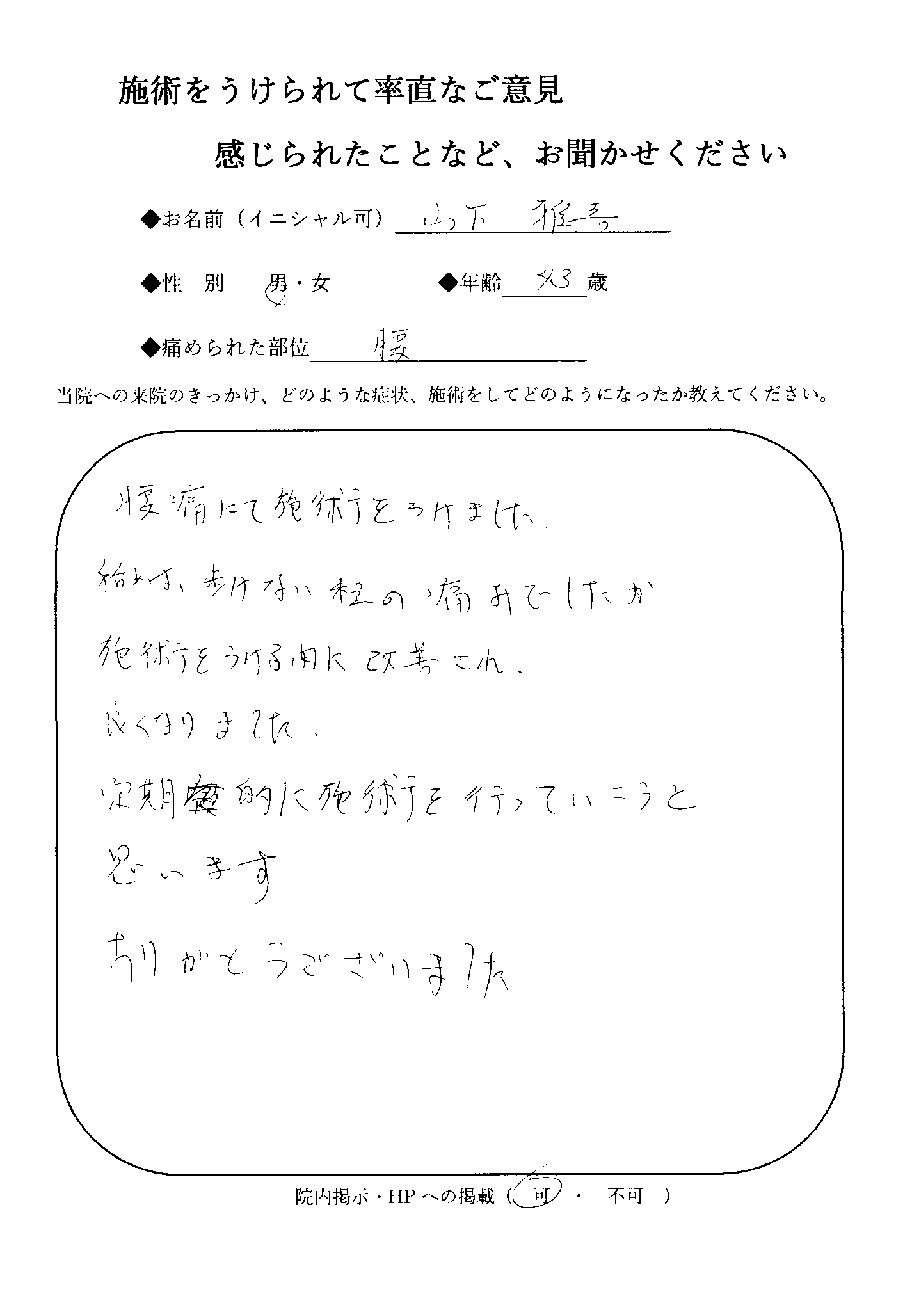 施術をうけられて率直なご意見
感じられたことなど、お聞かせください
◆お名前（イニシャル可） 山下 雅
◆性 別 男・女 ◆年齢 43 歳
◆痛められた部位 腰
当院への来院のきっかけ、どのような症状、施術をしてどのようになったか教えてください。
腰痛にて施術をうけました.
始めは、歩けない程の痛みでしたが
施術をうける内に改善され.
良くなりました.
定期的に施術を行っていこうと
思います
ありがとうございました
院内掲示・HPへの掲載（ 可 ・ 不可 ）